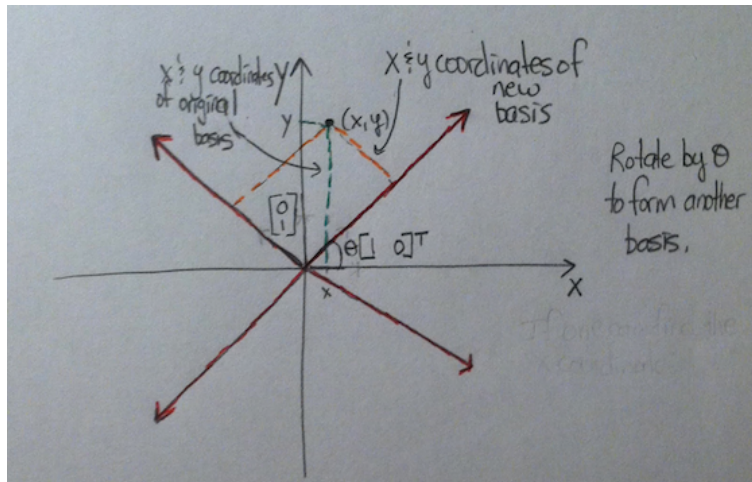 x & y coordinates
of original
basis
Y
X & y coordinates of
new
basis
y
(x,y)
Rotate by θ
to form another
basis.
[0
1]
θ [1 0]T
x
X
If one
the
x coordinate